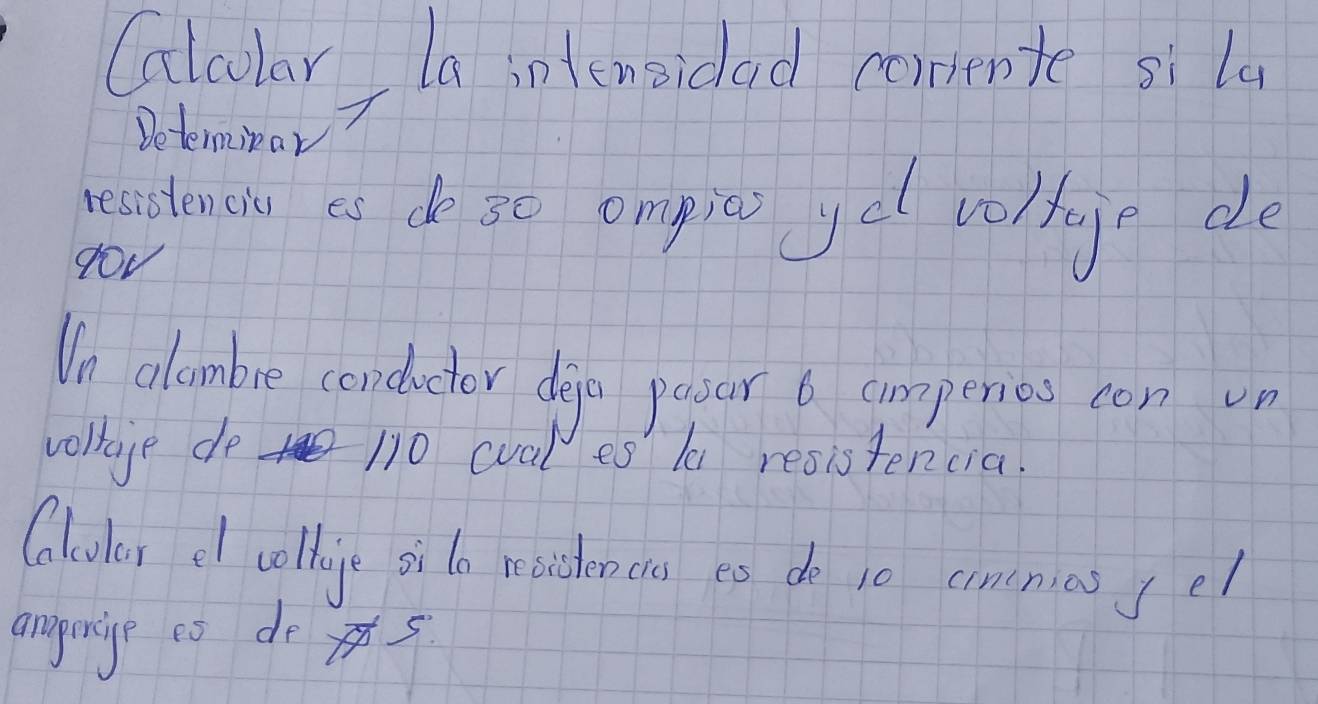 Calcular la intensidad corriente si la
Determinar
resistencia es de 30 ompios y el voltaje de
90V
Un alambre conductor deja pasar 6 amperios con un
voltaje de 110 cual es la resistencia.
Calcular el voltaje si la resistencia es de 10 y el
amperaje es de 5.